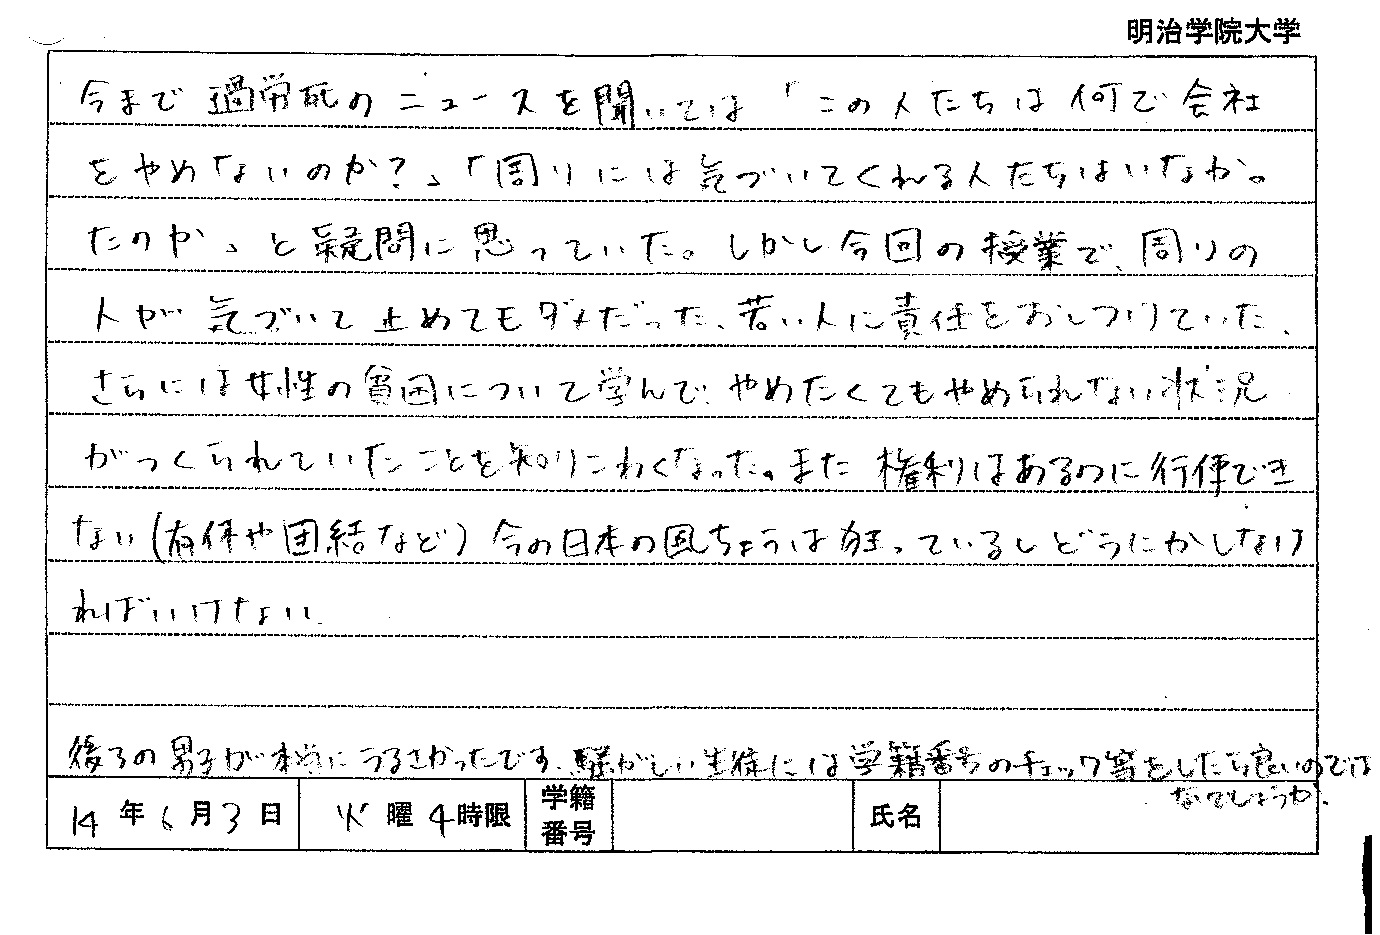 明治学院大学
今まで過労死のニュースを聞いては「この人たちは何で会社
をやめないのか?」「周りには気づいてくれる人たちはいなかっ
たのか」と疑問に思っていた。しかし今回の授業で、周りの
人が気づいて止めてもダメだった、若い人に責任をおしつけていた、
さらには女性の貧困について学んで、やめたくてもやめられない状況
がつくられていたことを知りこわくなった。また権利はあるのに行使でき
ない(有休や団結など)今の日本の風ちょうは狂っているしどうにかしなけ
ればいけない。
後ろの男子が本当にうるさかったです。騒がしい生徒には学籍番号のチェック等をしたら良いのでは
ないでしょうか。
14年6月3日 火曜4時限 学籍番号 氏名